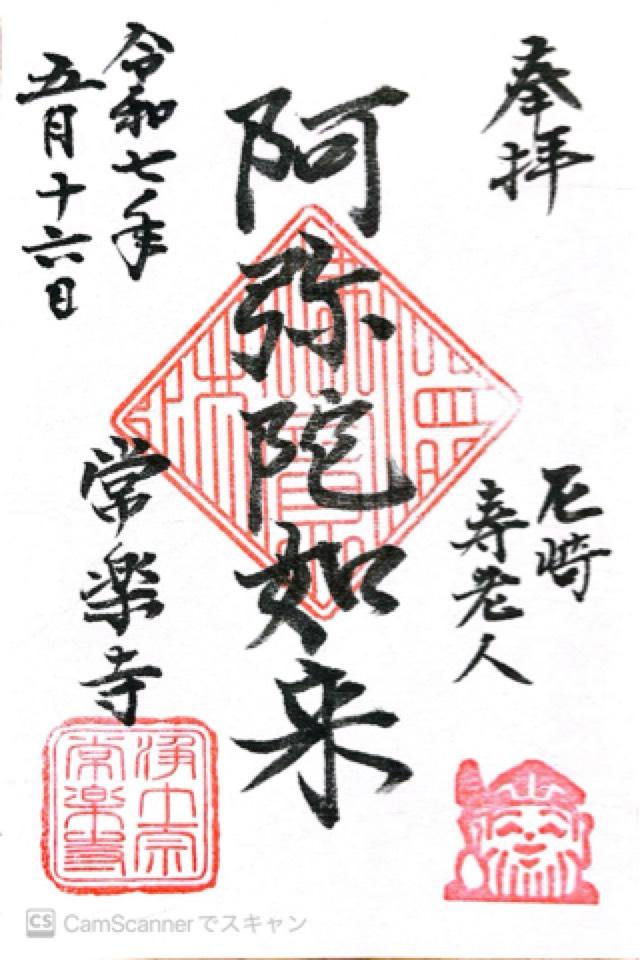 奉拝
尼崎
寿老人
阿弥陀如来
令和七年
五月十六日
常楽寺
浄土宗
常楽寺
CS CamScannerでスキャン